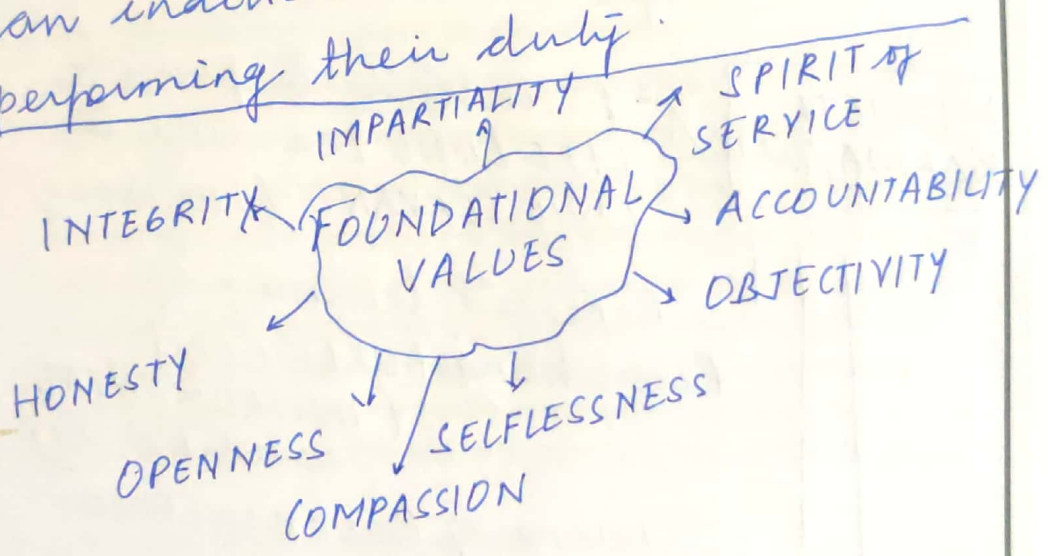 an
performing their duty.
IMPARTIALITY
SPIRIT of
SERVICE
INTEGRITY
FOUNDATIONAL
VALUES
ACCOUNTABILITY
OBJECTIVITY
HONESTY
SELFLESSNESS
OPENNESS
COMPASSION